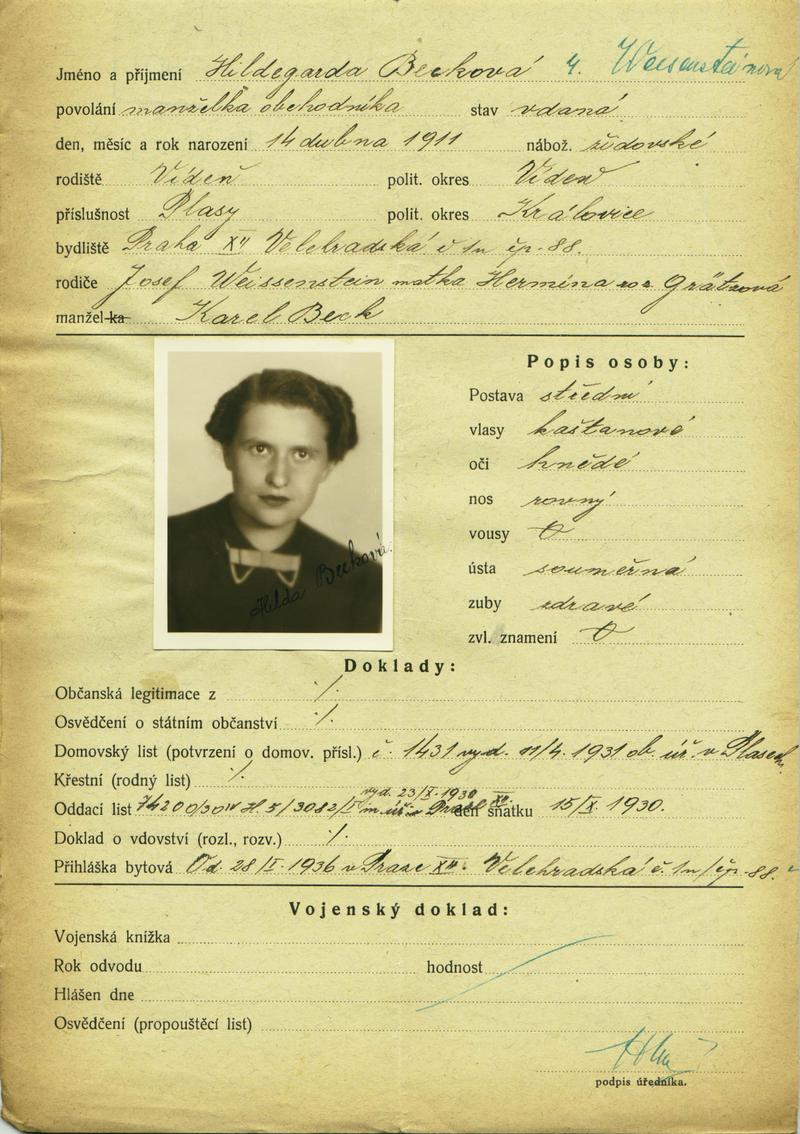 Jméno a příjmení Hildegarda Becková
povolání manželka obchodníka stav vdaná
den, měsíc a rok narození 14 dubna 1911 nábož. židovské
rodiště Vídeň polit. okres Vídeň
příslušnost Plasy polit. okres Kralovice
bydliště Praha XII Velehradská č 1n čp. 88.
rodiče Josef Weissenstein matka Hermína roz Grätzová
manžel-ka Karel Beck
Popis osoby:
Postava střední
vlasy kaštanové
oči hnědé
nos rovný
vousy 0
ústa souměrná
zuby zdravé
zvl. znamení 0
Hilda Becková
Doklady:
Občanská legitimace z ./.
Osvědčení o státním občanství ./.
Domovský list (potvrzení o domov. přísl.) č. 1431 vyd. 11/4. 1931 ob. úř. v Plasech
Křestní (rodný list) ./.
vyd. 23/X. 1930
Oddací list den sňatku 15/X. 1930.
Doklad o vdovství (rozl., rozv.) ./.
Přihláška bytová Od 28/I. 1936 v Praze XII. Velehradská č. 1n/čp. 88.
Vojenský doklad:
Vojenská knížka
Rok odvodu hodnost
Hlášen dne
Osvědčení (propouštěcí list)
podpis úředníka.